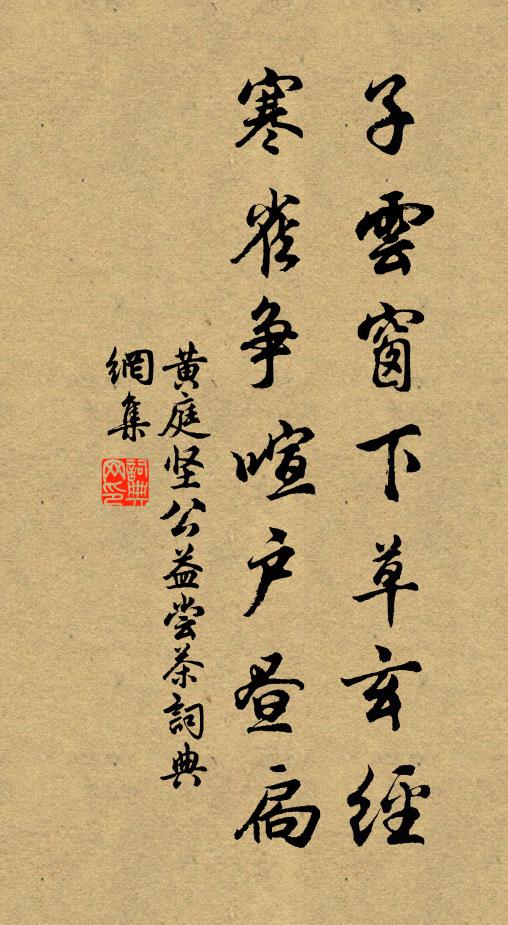 子雲窗下草玄經
寒雀争喧户晝扃
黄庭坚公益嘗茶詞典
網集
詞典网印